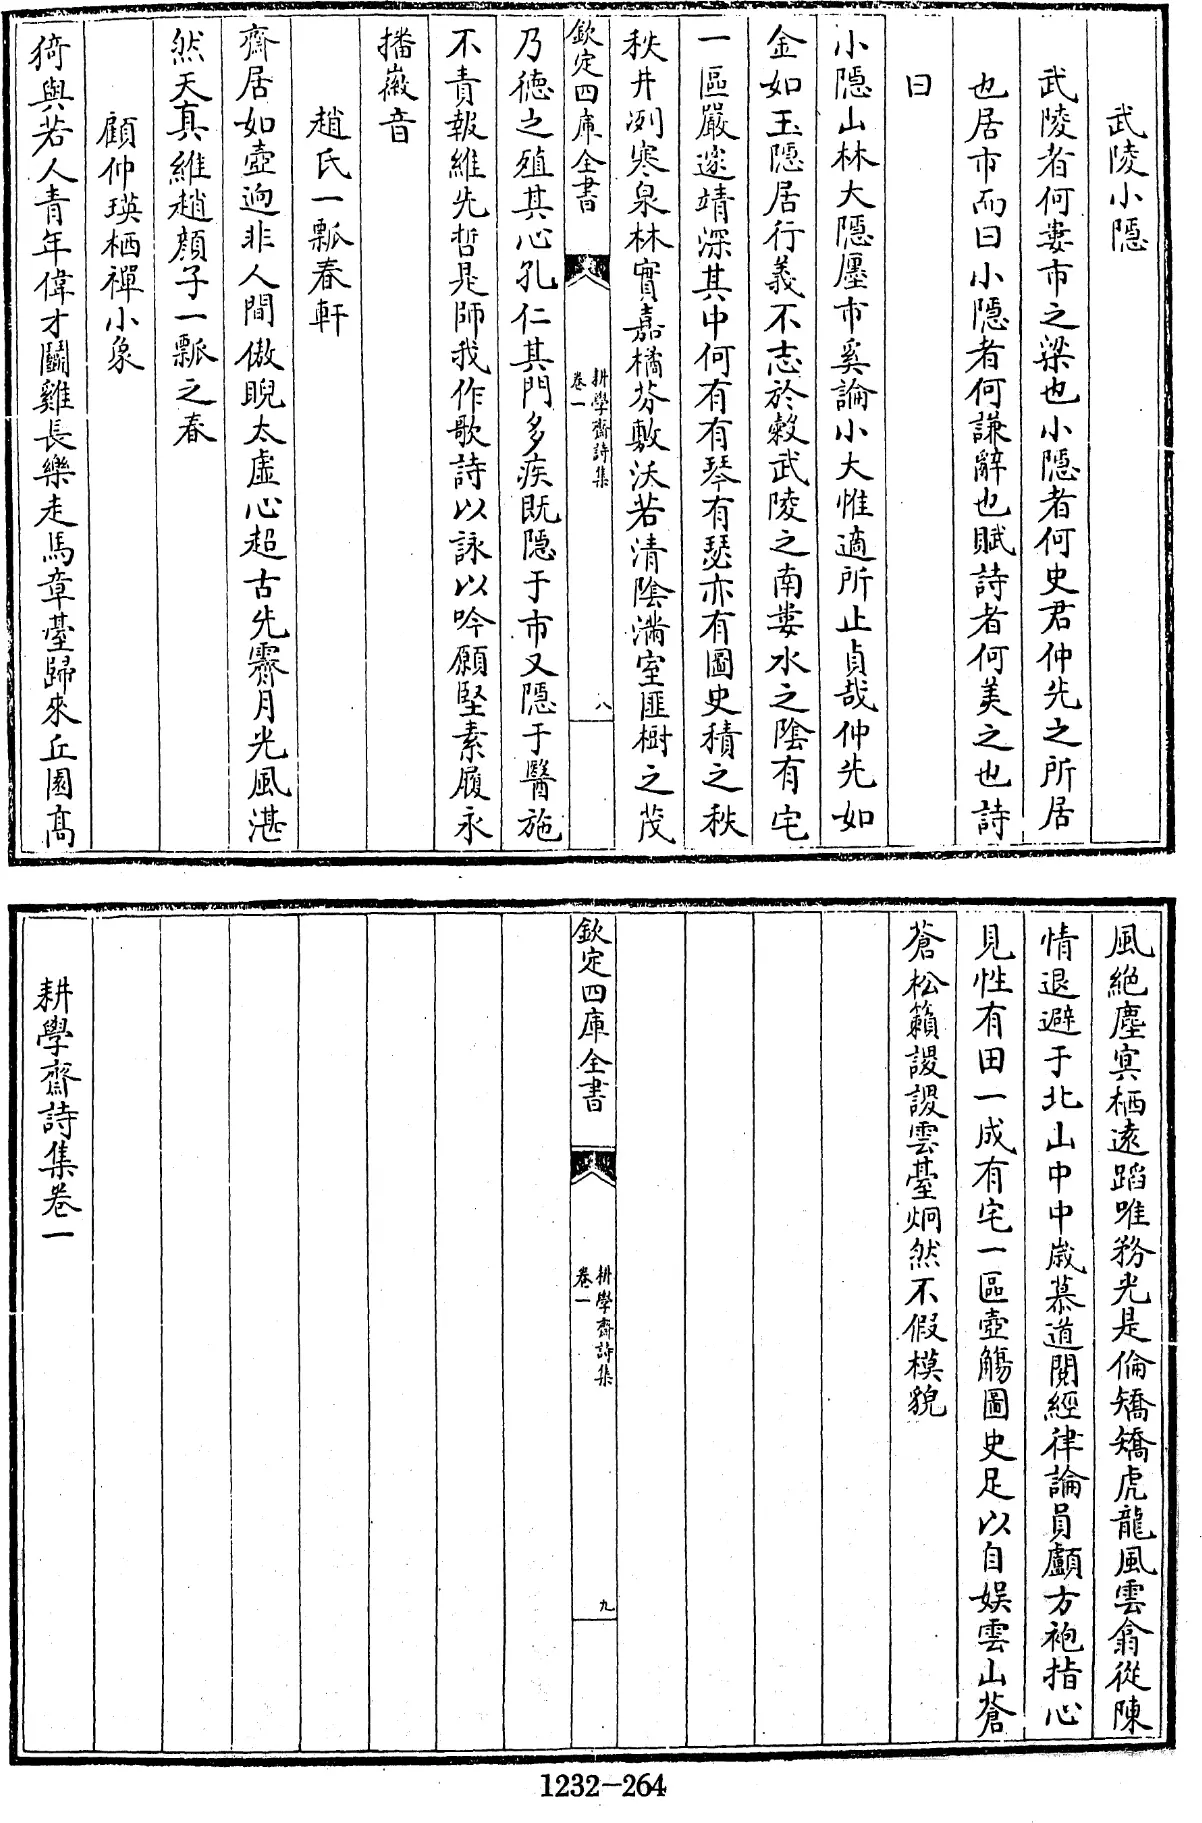 武陵小隱
武陵者何婁市之梁也小隱者何史君仲先之所居
也居市而曰小隱者何謙辭也賦詩者何美之也詩
曰
小隱山林大隱廛市奚論小大惟適所止貞哉仲先如
金如玉隱居行義不志於穀武陵之南婁水之陰有宅
一區嚴邃靖深其中何有有琴有瑟亦有圖史積之秩
秩井冽寒泉林實嘉橘芬敷沃若清陰滿室匪樹之茂
欽定四庫全書
耕學齋詩集
卷一
八
乃德之殖其心孔仁其門多疾既隱于市又隱于醫施
不責報維先哲是師我作歌詩以詠以吟願堅素履永
播徽音
趙氏一瓢春軒
齋居如壺逈非人間傲睨太虛心超古先霽月光風湛
然天真維趙顏子一瓢之春
顧仲瑛栖禪小象
猗與若人青年偉才鬭雞長樂走馬章臺歸來丘園高
風絶塵寘栖遠蹈唯務光是倫矯矯虎龍風雲翕從陳
情退避于北山中中歲慕道閱經律論員顱方袍指心
見性有田一成有宅一區壺觴圖史足以自娱雲山蒼
蒼松籟謖謖雲臺炯然不假模貌
欽定四庫全書
耕學齋詩集
卷一
九
耕學齋詩集卷一
1232-264